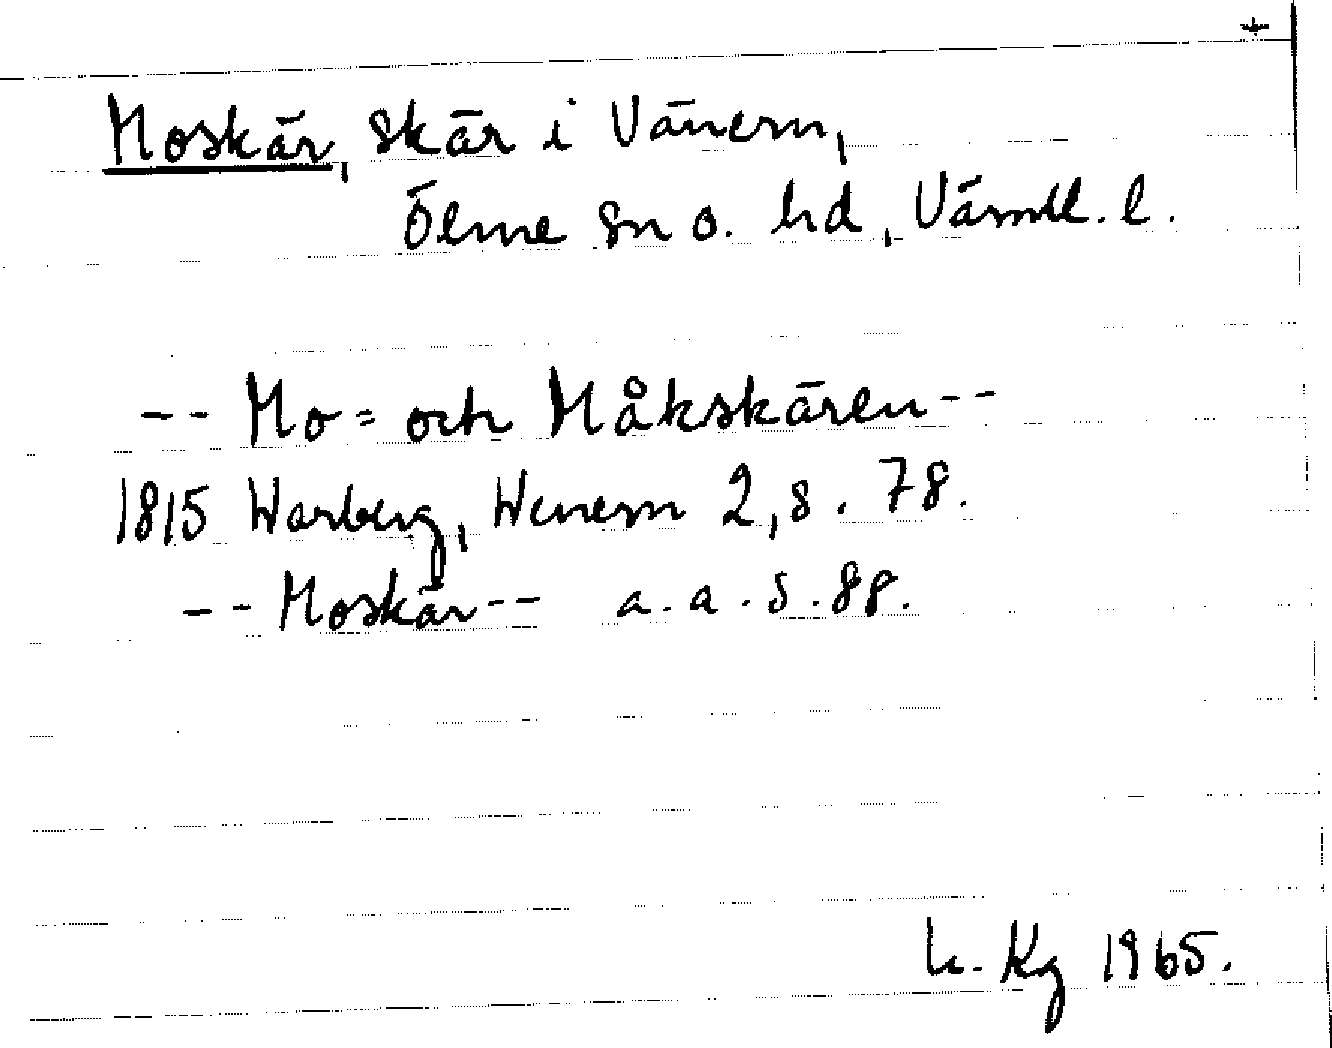 Moskär, skär i Vänern,
Ölme sn o. hd, Värml. l.
-- Mo= och Måkskären --
1815 Warberg, Wenern 2, s. 78.
-- Moskär -- a. a. s. 88.
Kg 1965.